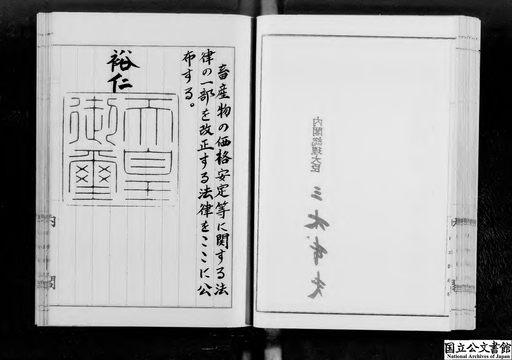 畜産物の価格安定等に関する法
律の一部を改正する法律をここに公
布する。
裕仁
天皇
御璽
内閣
内閣総理大臣
三木武夫
国立公文書館
National Archives of Japan